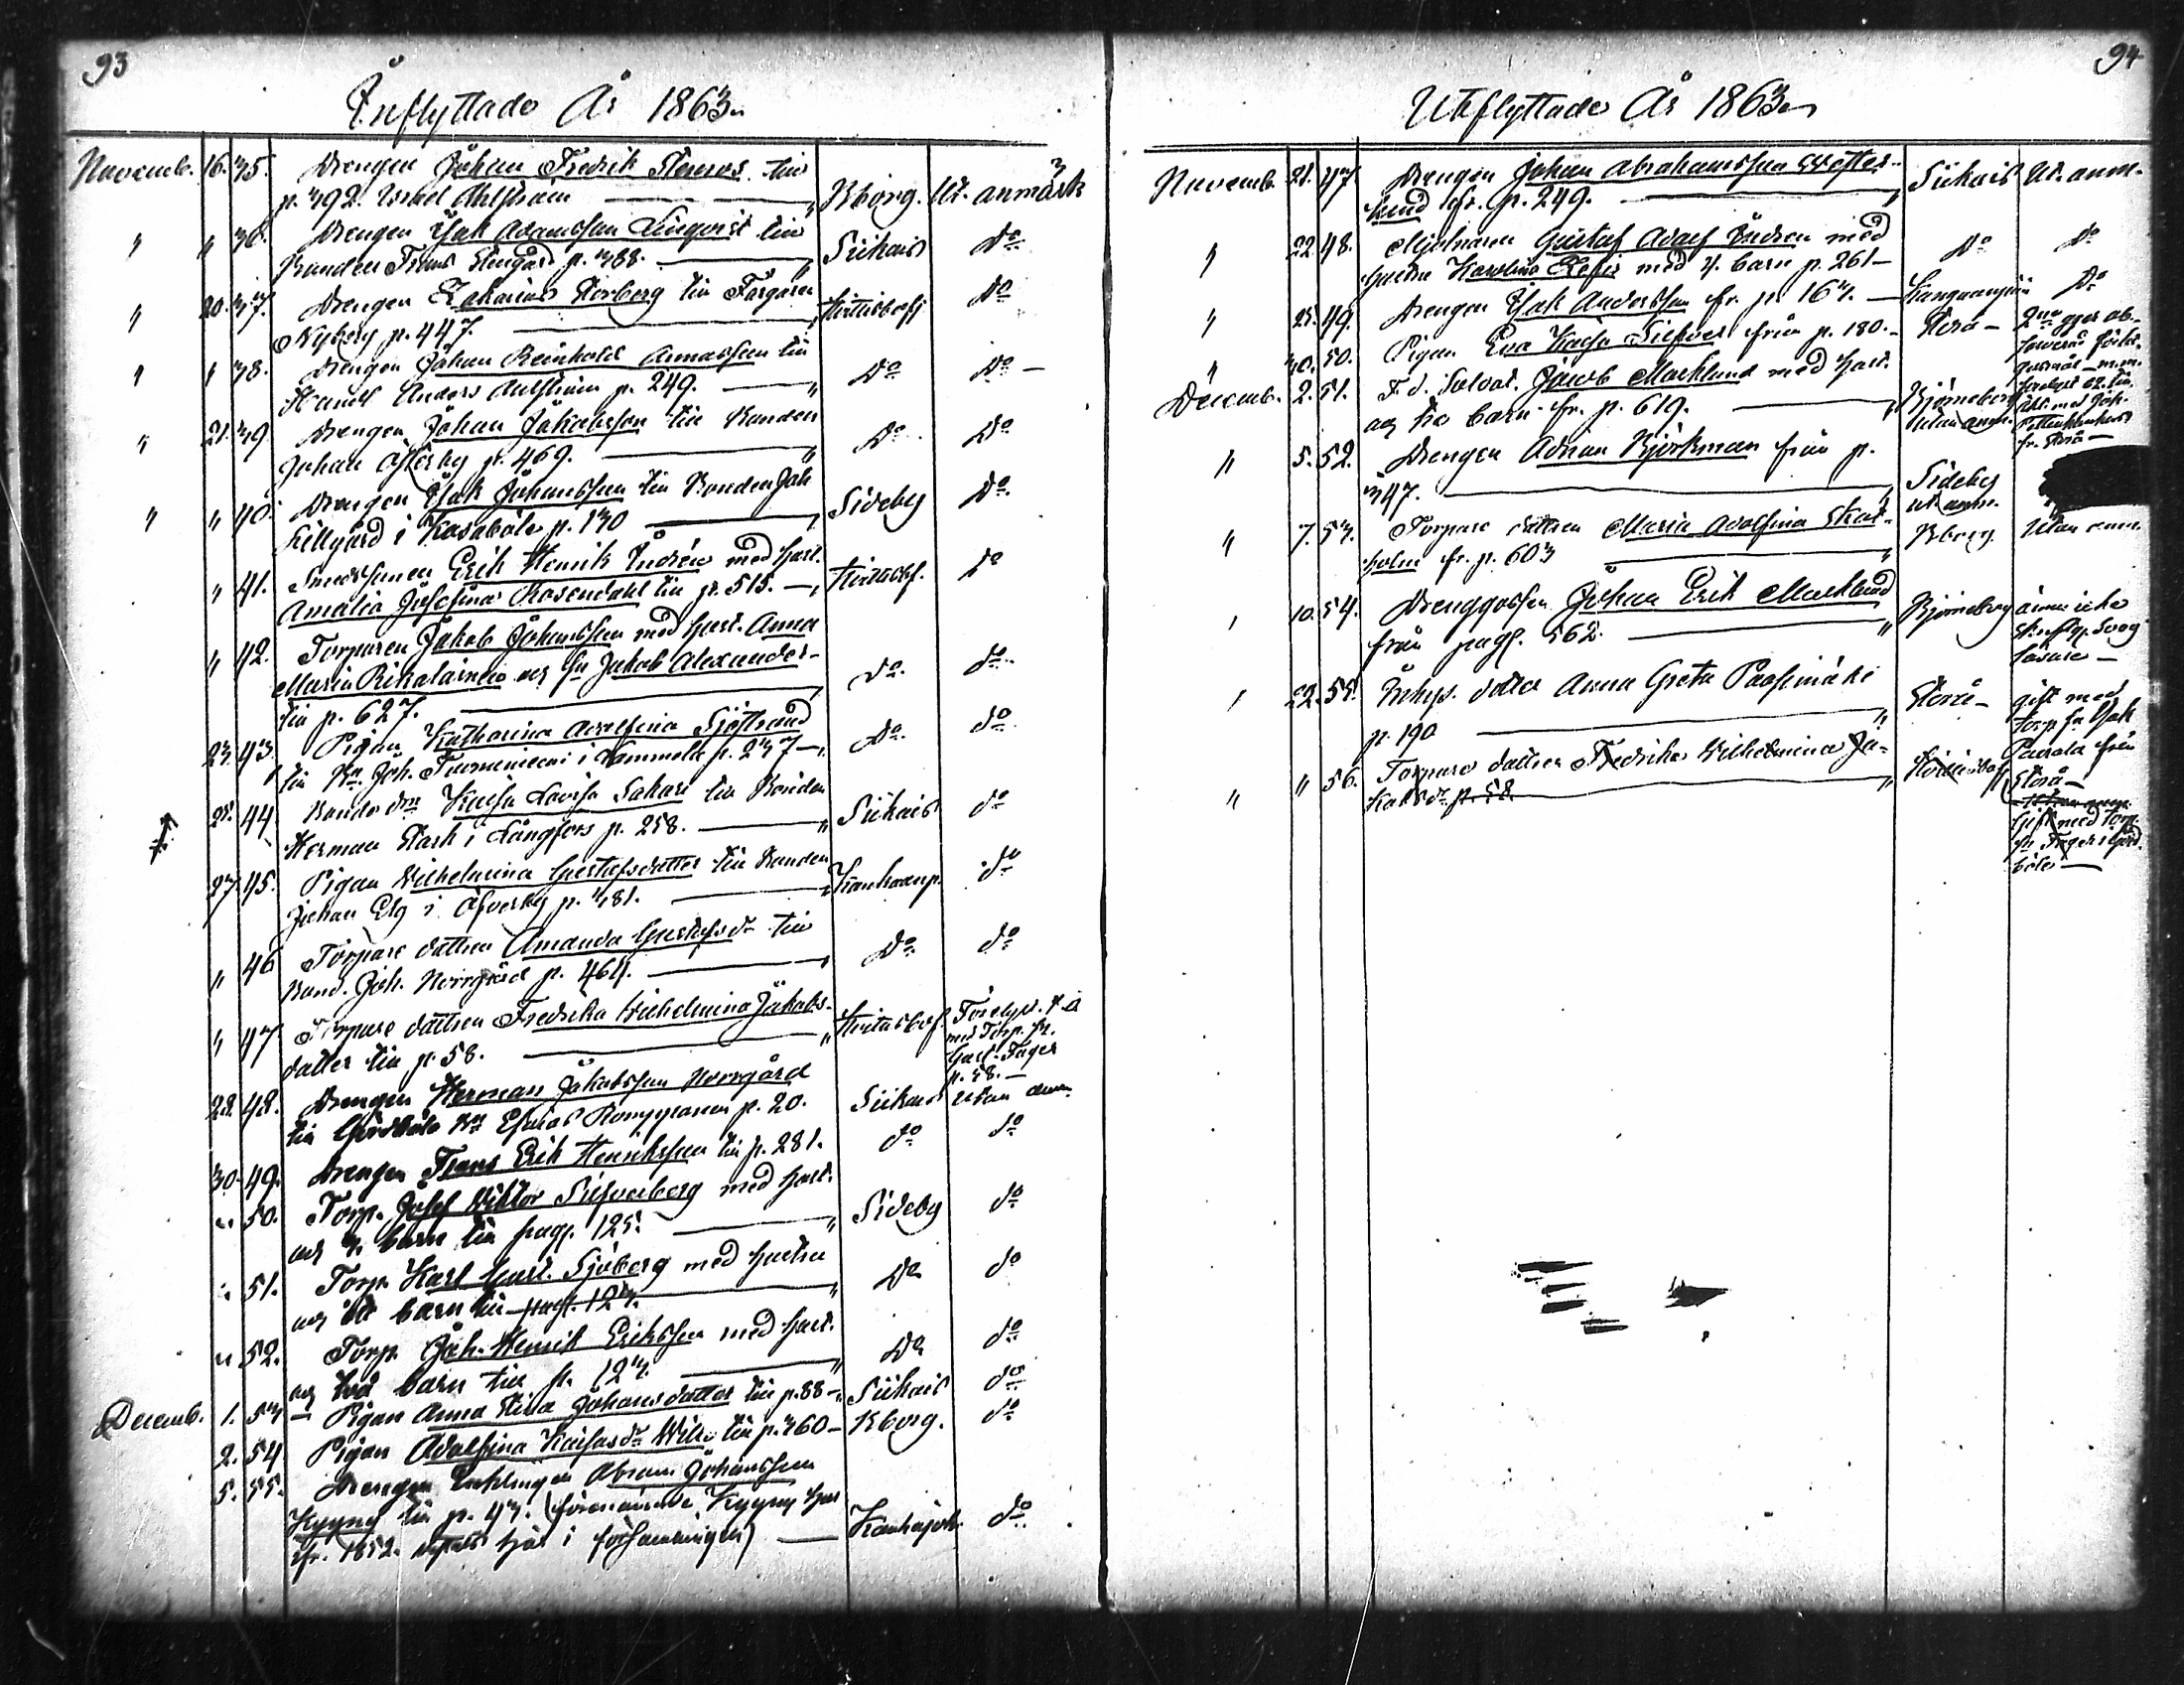 93
Inflyttade År 1863
Novemb. 16. 35. Drengen Johan Fredrik Stenros till
p. 392. Israel Ahlström Bborg. Ut. anmärk
" " 36. Drengen Isak Adamsson Linqvist till
Bonden Frans Storgård p. 388. Siikais Do
" 20. 37. Drengen Zakarias Storberg till Färgaren
Nyberg p. 447. Kristinestf Do
" " 38. Drengen Johan Reinhold Annasson till
Handl Anders Ahlström p. 249. Do Do
" 21. 39 Drengen Johan Jakobsson till Bonden
Johan Österby p. 469. Do Do
" " 40. Drengen Isak Johansson till Bonden Joh
Lillgård i Kasaböle p. 130 Sideby Do
" 41. Erik Henrik Indrén med hust.
Amalia Josefina Rosendahl till p. 515. Kristinestf. Do
" 42. Torparen Jakob Johansson med hust. Anna
Maria Rikalainen och sn Jakob Alexander
till p. 627. Do do
23. 43. Pigan Katharina Adolfina Sjöstrand
till Bn Joh. Tuominiemi i Lammela p. 237 Do do
25. 44 Bonde dn Kaisa Lovisa Sakari till Bonden
Herman Stark i Långfors p. 258. Siikais do
27. 45. Pigan Wilhelmina Gustafsdotter till Bonden
Johan Elg i Öfverby p. 481. Kankaanp. do
" 46 Torpare dottren Amanda Gustafsdr till
Bond. Joh. Norrgård p. 464. Do do
" 47 Torpare dottren Fredrika Wilhelmina Jakobs-
dotter till p. 58. Kristinestf. Förelyst
med Torp. sn.
Gust. Fager
p. 58.
28. 48. Drengen Herman Jakobsson Norrgård
till Gårdböle Bn Esaias Ronggranen p. 20. Siikais Utan anm.
30. 49. Drengen Frans Erik Henriksson till p. 281. do do
" 50. Torp. Josef Wiktor Silfverberg med hust.
och 3. barn till pag. 125. Sideby do
" 51. Torp. Karl Gust. Sjöberg med hustru
och ett barn till pag. 123. Do do
" 52. Torp. Joh. Henrik Eriksson med hust.
och två barn till p. 123. Do do
Decemb. 1. 53 Pigan Anna Stina Johansdotter till p. 88 Siikais do
2. 54 Pigan Adolfina Kaisasdr till p. 360 Bborg. do
5. 55. Drengen Abram Johansson
Kyyny till p. 43. (förenämnde Kyyny har
fr. 1852. vistats här i församlingen) Kauhajoki. do
94
Utflyttade År 1863
Novemb. 21. 47 Drengen Johan Abrahamsson Wester-
lund fr. p. 249. Siikais Ut. anm.
" 22 48. Mjölnaren Gustaf Adolf Indren med
hustru Karolina med 4. barn p. 261 Do Do
" 25. 49. Drengen Isak Andersson fr. p. 163. Kangaanpää Do
" 30. 50. Pigan Eva Kaisa Silfver från p. 180. Storå
Decemb. 2. 51. F. d. Soldat. Jacob Marklund med hust.
och tre barn fr. p. 619. Björneborg
Utan anm.
" 5. 52. Drengen Adrian Björkman från p.
347. Sideby
ut anm.
" 7. 53. Torpare dottren Maria Adolfina Skat-
holm fr. p. 603 Bborg. Utan anm.
" 10. 54. Drenggossen Johan Erik Marklund
från pag. 562. Björneborg ännu icke
skriftsk. svag
läsare
" 22. 55. Inhys. dotter Anna Greta Paasimäki
p. 190 Storå gift med
torp. sn Isak
från
Storå
" " 56. Torpare dottren Fredrika Wilhelmina Ja-
kobsdr p. 58. Kristinestf
Gift med Torp.
sn Fager i Gård-
böle